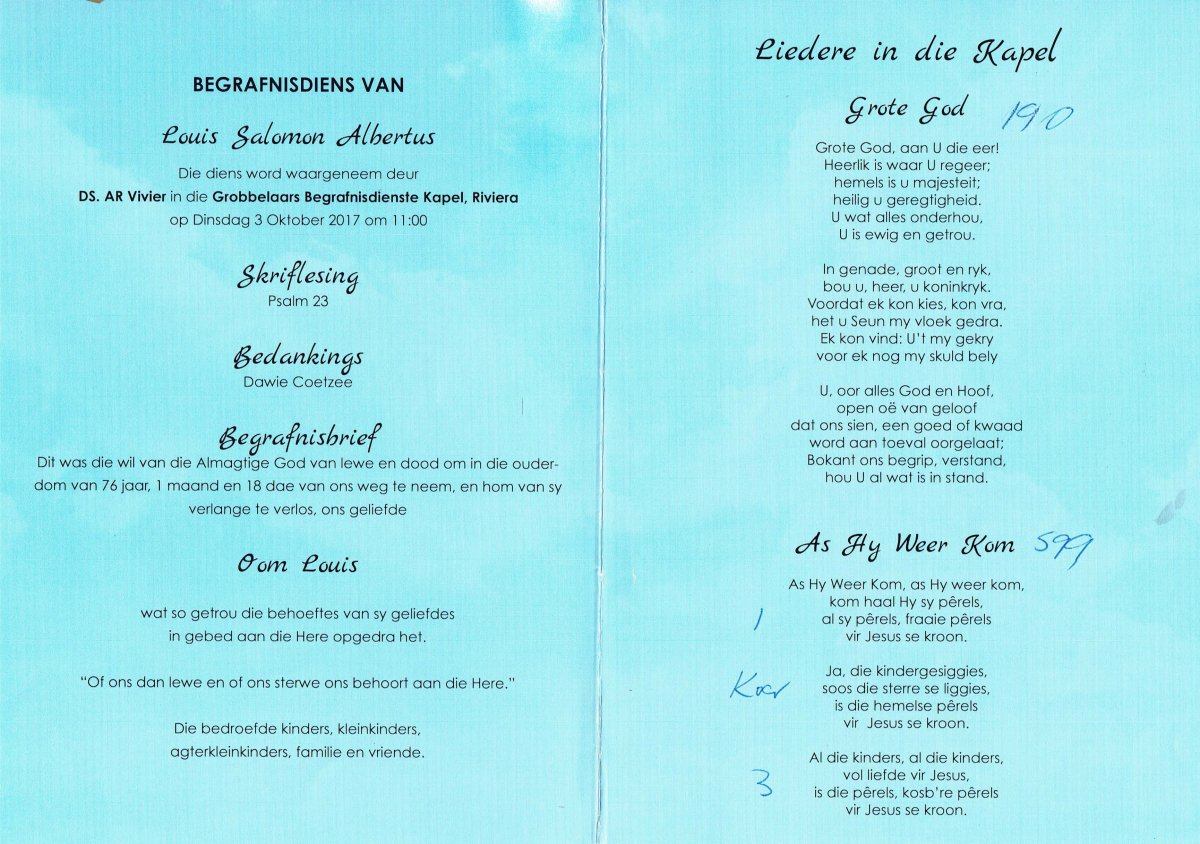 BEGRAFNISDIENS VAN
Louis Salomon Albertus
Die diens word waargeneem deur
DS. AR Vivier in die Grobbelaars Begrafnisdienste Kapel, Riviera
op Dinsdag 3 Oktober 2017 om 11:00
Skriflesing
Psalm 23
Bedankings
Dawie Coetzee
Begrafnisbrief
Dit was die wil van die Almagtige God van lewe en dood om in die ouder-
dom van 76 jaar, 1 maand en 18 dae van ons weg te neem, en hom van sy
verlange te verlos, ons geliefde
Oom Louis
wat so getrou die behoeftes van sy geliefdes
in gebed aan die Here opgedra het.
“Of ons dan lewe en of ons sterwe ons behoort aan die Here.”
Die bedroefde kinders, kleinkinders,
agterkleinkinders, familie en vriende.
Liedere in die Kapel
Grote God 190
Grote God, aan U die eer!
Heerlik is waar U regeer;
hemels is u majesteit;
heilig u geregtigheid.
U wat alles onderhou,
U is ewig en getrou.
In genade, groot en ryk,
bou u, heer, u koninkryk.
Voordat ek kon kies, kon vra,
het u Seun my vloek gedra.
Ek kon vind: U't my gekry
voor ek nog my skuld bely
U, oor alles God en Hoof,
open oë van geloof
dat ons sien, een goed of kwaad
word aan toeval oorgelaat;
Bokant ons begrip, verstand,
hou U al wat is in stand.
As Hy Weer Kom 599
As Hy Weer Kom, as Hy weer kom,
kom haal Hy sy pêrels,
1 al sy pêrels, fraaie pêrels
vir Jesus se kroon.
Ja, die kindergesiggies,
Koor soos die sterre se liggies,
is die hemelse pêrels
vir Jesus se kroon.
Al die kinders, al die kinders,
3 vol liefde vir Jesus,
is die pêrels, kosb're pêrels
vir Jesus se kroon.